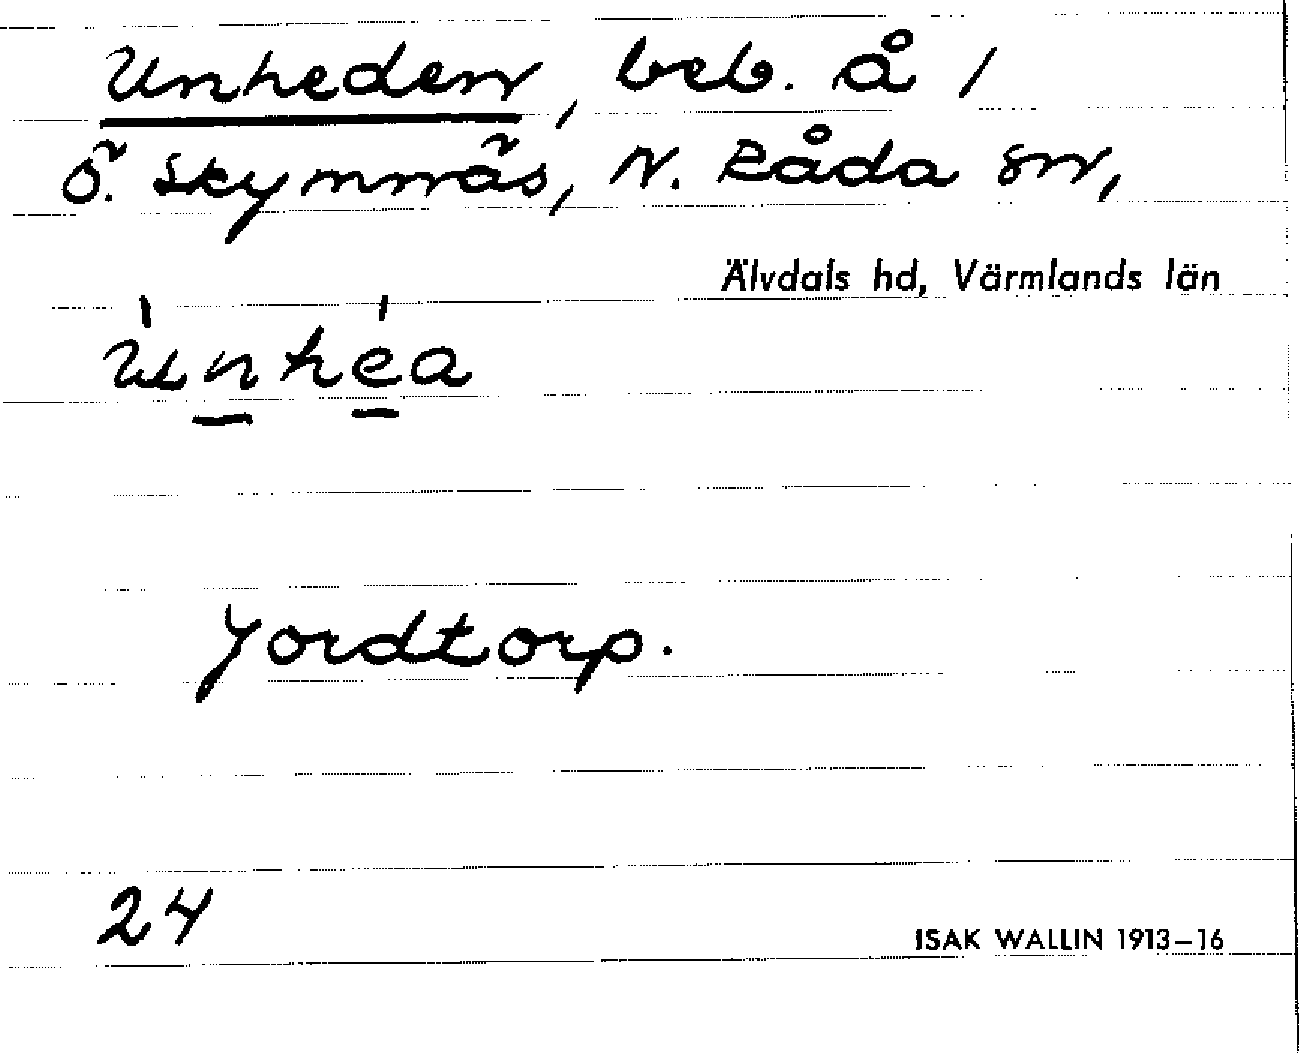 Unheden, beb. å /
Ö. Skymnäs, N. Råda sn,
Älvdals hd, Värmlands län
ùnhéa
Jordtorp.
24
ISAK WALLIN 1913–16